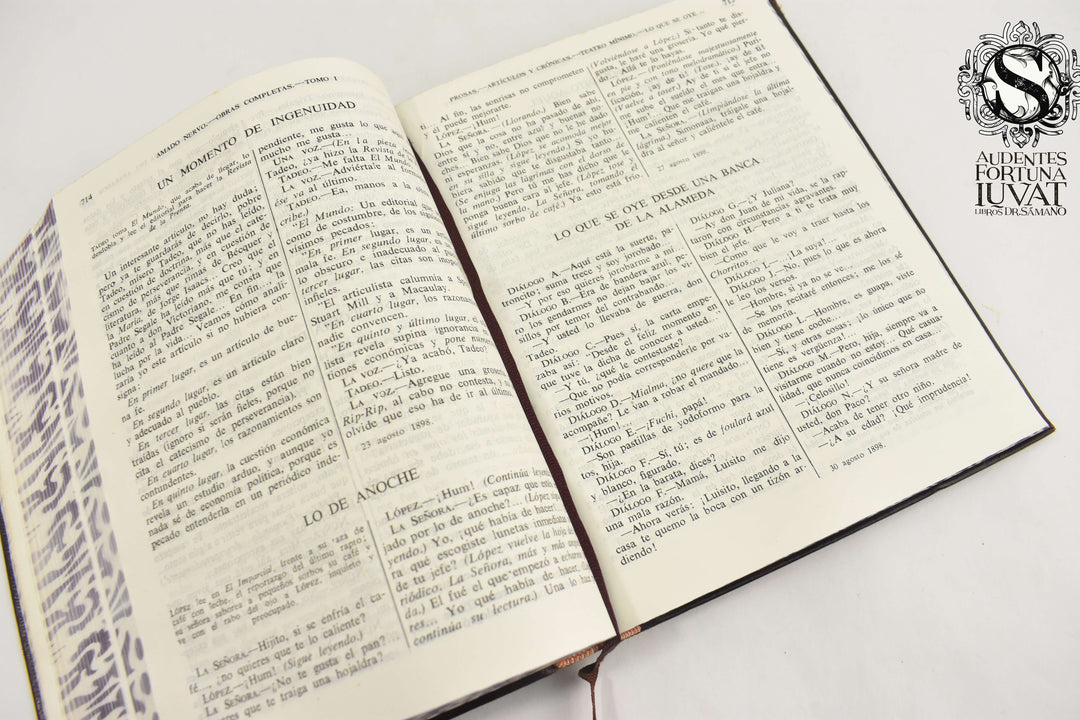 714
AMADO NERVO.—OBRAS COMPLETAS.—TOMO I
UN MOMENTO DE INGENUIDAD
TADEO toma El Mundo, que acaba de llegar, lo
desdobla y lee el editorial para hacer la Revista
de la Prensa.
Un interesante artículo, no hay duda;
pero ya te guardarás de decirlo, pobre
Tadeo, mísero Tadeo, que no has leído,
en cuestión de doctrina, más que el cate-
cismo de perseverancia, y en cuestión de
literatura, más que Rimas de Bécquer y
María, de Jorge Isaacs. Creo que el
Padre Segale ha leído más que tú; y en
cuanto a don Victoriano, me consta que
ha leído al Padre Segale... En fin... la
lucha por la vida. Veamos cómo anali-
zaría yo este artículo si no hubiera con-
signa:
En primer lugar, es un artículo de bue-
na fe.
En segundo lugar, es un artículo claro
y adecuado al pueblo.
En tercer lugar, las citas están bien
traídas (ignoro si serán fieles, porque no
cita el catecismo de perseverancia).
En cuarto lugar, los razonamientos son
contundentes.
En quinto lugar, la cuestión económica
revela un estudio arduo, y aunque yo
nada sé de economía política, porque es
pecado entenderla en un periódico inde-
pendiente, me gusta lo que
mucho me gusta...
UNA VOZ.—(En la pieza
Tadeo, ¿ya hizo la Revista de
TADEO.—Me falta El Mundo.
LA VOZ.—Adviértale
ése va al último.
TADEO.—Ea, manos a la
cribe.)
"El Mundo: Un editorial
como de costumbre, de los
vísimos pecados:
"En primer lugar, es un
mala fe. En segundo lugar, es
lo obscuro e inadecuado al
tercer lugar, las citas son
infieles.
"El articulista calumnia a
Stuart Mill y a Macaulay.
"En cuarto lugar, los razona
nadie convencen.
"En quinto y último lugar, el
lista revela supina ignorancia
tiones económicas y pone
LA VOZ.—¿Ya acabó, Tadeo?
TADEO.—Listo.
LA VOZ.—Agregue una grosería
Rip-Rip, al cabo no contesta, y no
olvide que eso ha de ir al último.
23 agosto 1898.
LO DE ANOCHE
LÓPEZ lee en El Imparcial, frente a su taza de
café con leche, el reportazgo del último rapto;
su señora saborea a pequeños sorbos su café y
ve con el rabo del ojo a López, inquieto y
preocupado.
LA SEÑORA.—Hijito, si se enfría el ca-
fé..., ¿no quieres que te lo caliente?
LÓPEZ.—¡Hum! (Sigue leyendo.)
LA SEÑORA.—¿No te gusta el pan?
eres que te traiga una hojaldra?
LÓPEZ.—¡Hum! (Continúa leyendo.)
LA SEÑORA.—¿Es capaz que estés
jado por lo de anoche?... (López sigue
yendo.) Yo, ¡qué había de hacer!
ra qué escogiste lunetas inmediatas
de tu jefe? (López vuelve la hoja del
riódico. La Señora, más y más
da.) El fué el que empezó a echarme
... Yo qué había de hacer,
continúa su lectura.) Una lo
PROSAS.—ARTÍCULOS Y CRÓNICAS.—TEATRO MÍNIMO.—LO QUE SE OYE...
715
Al fin, las sonrisas no comprometen
él puede mejorarte.
LÓPEZ.—¡Hum!
LA SEÑORA.—(Llorando.) Bien sabe
Dios que la cosa no ha pasado de ahí,
entre si y no, ¡Dios azul! y bueno,
Bien sabe Dios que no le he dado
nada. (López se acomoda mejor
en su silla y sigue leyendo.) Si tú
bien sabías que te disgustaba tanto...
(Se enjuga las lágrimas con el dorso de
la mano.) Pero tú me has dicho que le
ponga buena cara al jefe. (López
sigue leyendo. La Señora, tomando el
último sorbo de café.) Ya está frío
(Volviéndose a López.) Si tanto te dis-
gusta, le haré una grosería. Yo qué pier-
do... Allá te lo hayas.
LÓPEZ.—(Poniéndose majestuosamente
en pie y con tono melodramático.) Puri-
ficación, ¡ay de ti! (Tose.). ¡ay de ti!
(Vuelve a toser.) ¡ay de ti, si el jefe no
me sube el sueldo el mes que entra...
¡Hum! Que me traigan una hojaldra y
me calienten el café.
LA SEÑORA.—(Limpiándose la última
lágrima.) Simonaaa, tráigale una hojal-
dra al señor y caliéntele el café.
27 agosto 1898.
LO QUE SE OYE DESDE UNA BANCA
DE LA ALAMEDA
DIÁLOGO A.—Aquí está la suerte, pa-
troncito; suma trece y soy jorobado.
—Y por eso quieres jorobarme a mí.
DIÁLOGO B.—Era de bandera azul; pe-
ro los gendarmes no dejan bajar los vi-
sillos por temor del contrabando...
—¿Y usted lo llevaba de guerra, don
Tadeo.
DIÁLOGO C.—Pues sí, la carta empe-
zaba así: "Desde el feliz momento en
que tuve la dicha de conocer a usted..."
—Y tú, ¿qué le contestaste?
—Que no podía corresponderle por va-
rios motivos.
DIÁLOGO D.—Mialma, ¿no quere que la
acompañe? Le van a robar el mandado...
—¡Hum!...
DIÁLOGO E.—¡Fuchi, papá!
—Son pastillas de yodoformo para la
tos, hija.
DIÁLOGO F.—Sí, tú; es de foulard azul
y blanco, figurado.
—¿En la barata, dices?
DIÁLOGO F.—Mamá, Luisito me dijo
una mala razón.
—Ahora verás: ¡Luisito, llegando a la
casa te quemo la boca con un tizón ar-
diendo!
DIÁLOGO G.—¿Y Juliana?
—Ay don Juan de mi vida, se la rap-
taron con circunstancias agravantes.
DIÁLOGO H.—Pero a ti te trata muy
bien el jefe.
—Como que le voy a traer hasta los
Chorritos...
DIÁLOGO I.—¿La suya?
DIÁLOGO J.—No, pues lo que es ahora
leo los versos.
—Hombre, si ya no se ve...
—Se los recitaré entonces; me los sé
de memoria.
DIÁLOGO L.—Hombre, es guapa, viste
bien y tiene coche.
—Sí, y otras cosas; ¡lo único que no
tiene es vergüenza!
DIÁLOGO M.—Pero, hija, siempre va a
visitarme cuando no estoy... ¡Qué casua-
lidad, que nunca coincidimos en casa...
—¡Celosillo!
DIÁLOGO N.—¿Y su señora madre de
usted, don Paco?
—Acaba de tener otro niño.
—¿A su edad? ¡Qué imprudencia!
30 agosto 1898.
S
AUDENTES
FORTUNA
IUVAT
LIBROS DR. SÁMANO